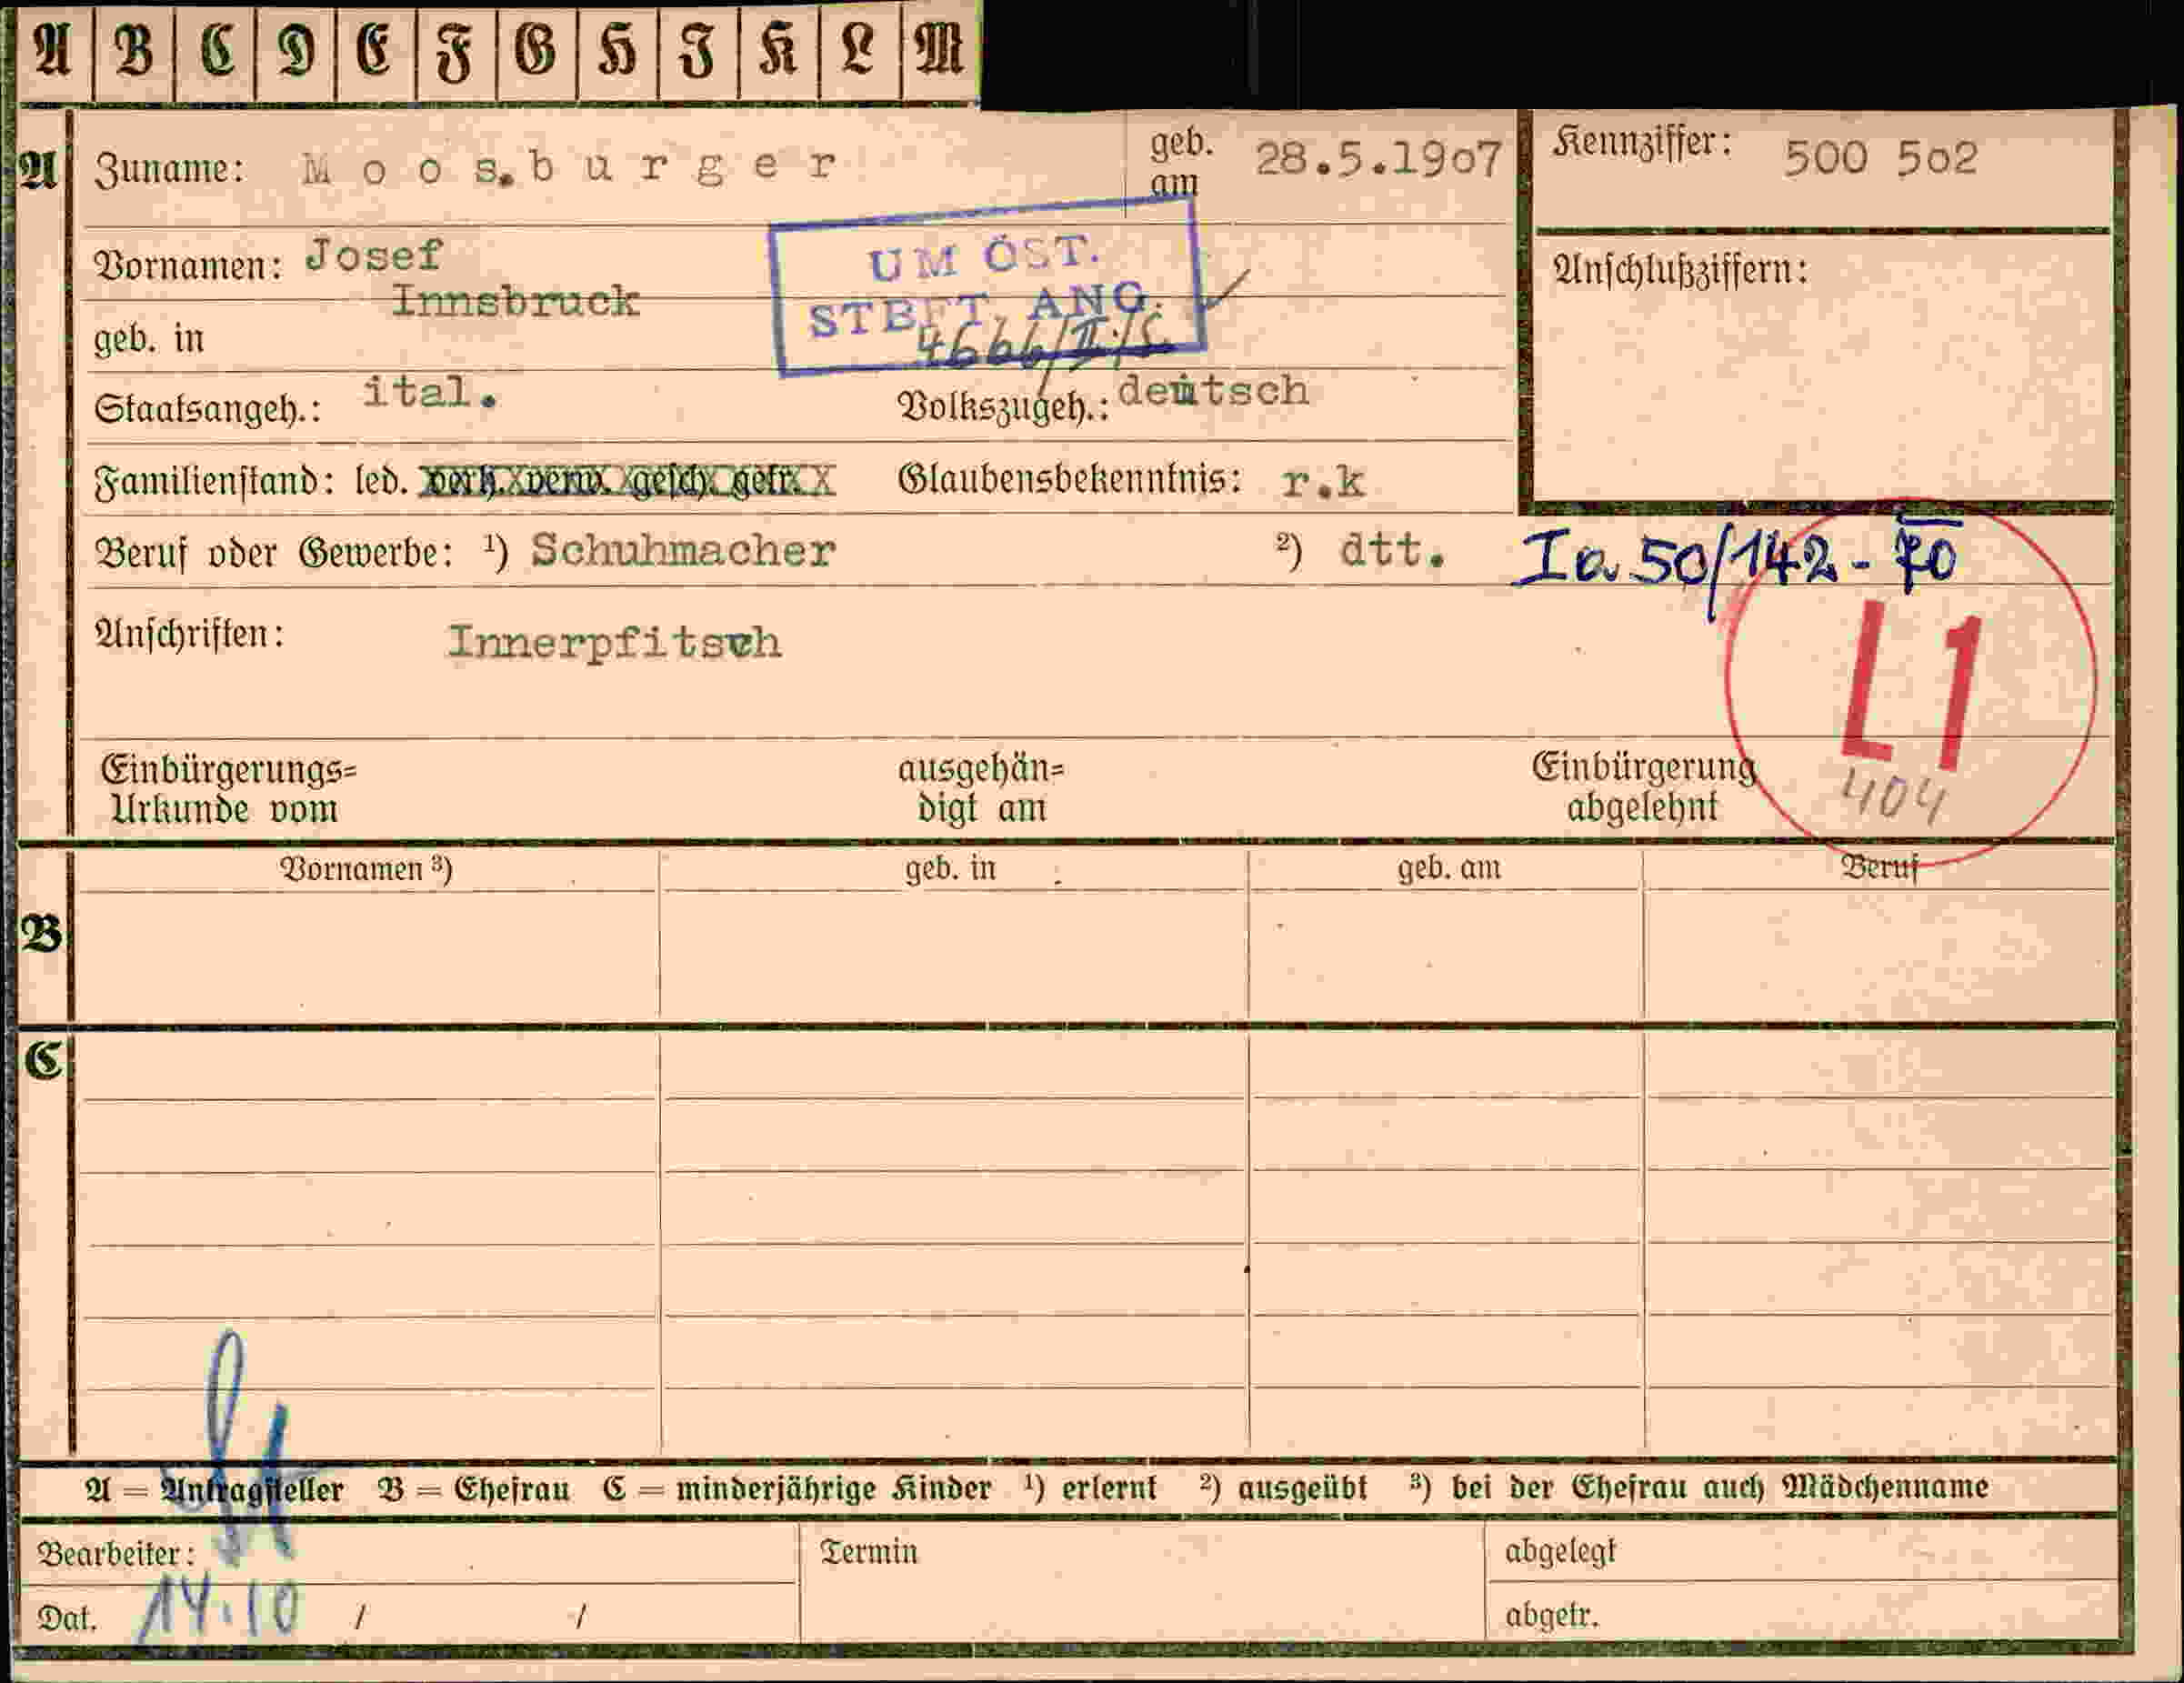 A B C D E F G H J K L M
A Zuname: Moosburger geb. am 28.5.1907 Kennziffer: 500 502
Vornamen: Josef
UM ÖST.
STBFT. ANG.
4666/II/S
Anschlußziffern:
geb. in Innsbruck
Staatsangeh.: ital. Volkszugeh.: deutsch
Familienstand: led. verh. verw. gesch. getr. Glaubensbekenntnis: r.k
Beruf oder Gewerbe: ¹) Schuhmacher ²) dtt. Ia 50/142-70
Anschriften: Innerpfitsch
L1
404
Einbürgerungs= ausgehän= Einbürgerung
Urkunde vom digt am abgelehnt
Vornamen ³) geb. in geb. am Beruf
B
C
A = Antragsteller B = Ehefrau C = minderjährige Kinder ¹) erlernt ²) ausgeübt ³) bei der Ehefrau auch Mädchenname
Bearbeiter: Termin abgelegt
Dat. 14.10 / / abgetr.